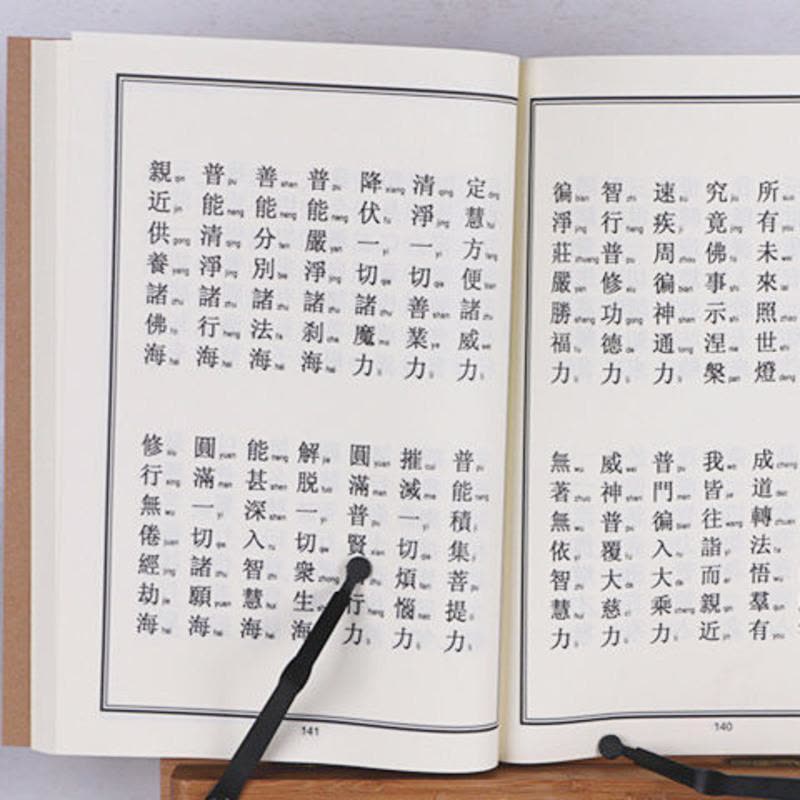 所有未來照世燈
成道轉法悟羣有
究竟佛事示涅槃
我皆往詣而親近
速疾周徧神通力
普門徧入大乘力
智行普修功德力
威神普覆大慈力
徧淨莊嚴勝福力
無著無依智慧力
140
定慧方便諸威力
普能積集菩提力
清淨一切善業力
摧滅一切煩惱力
降伏一切諸魔力
圓滿普賢行力
普能嚴淨諸剎海
解脫一切衆生海
善能分別諸法海
能甚深入智慧海
普能清淨諸行海
圓滿一切諸願海
親近供養諸佛海
修行無倦經劫海
141